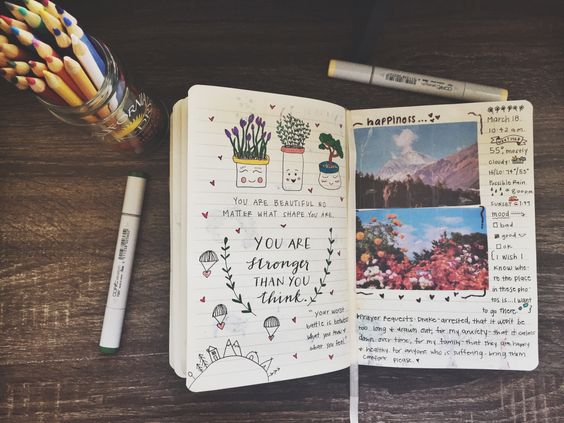 YOU ARE BEAUTIFUL NO
MATTER WHAT SHAPE YOU ARE.
YOU ARE
stronger
THAN YOU
think.
"your worst
battle is between
what you know &
what you feel."
happiness...
March 18.
10:42 a.m.
WEATHER
55° mostly
cloudy
Hi/Lo: 74°/53°
Possible Rain
8:00pm
SUNSET
mood
bad
good
ok
(I wish I
knew whe-
re the place
in these pho-
tos is... I want
to go there
Prayer Requests: Drake-arrested, that it won't be
too long & drawn out, for my anxiety-that it calms
down over time, for my family-that they are happy
& healthy. for anyone who is suffering-bring them
comfort please.